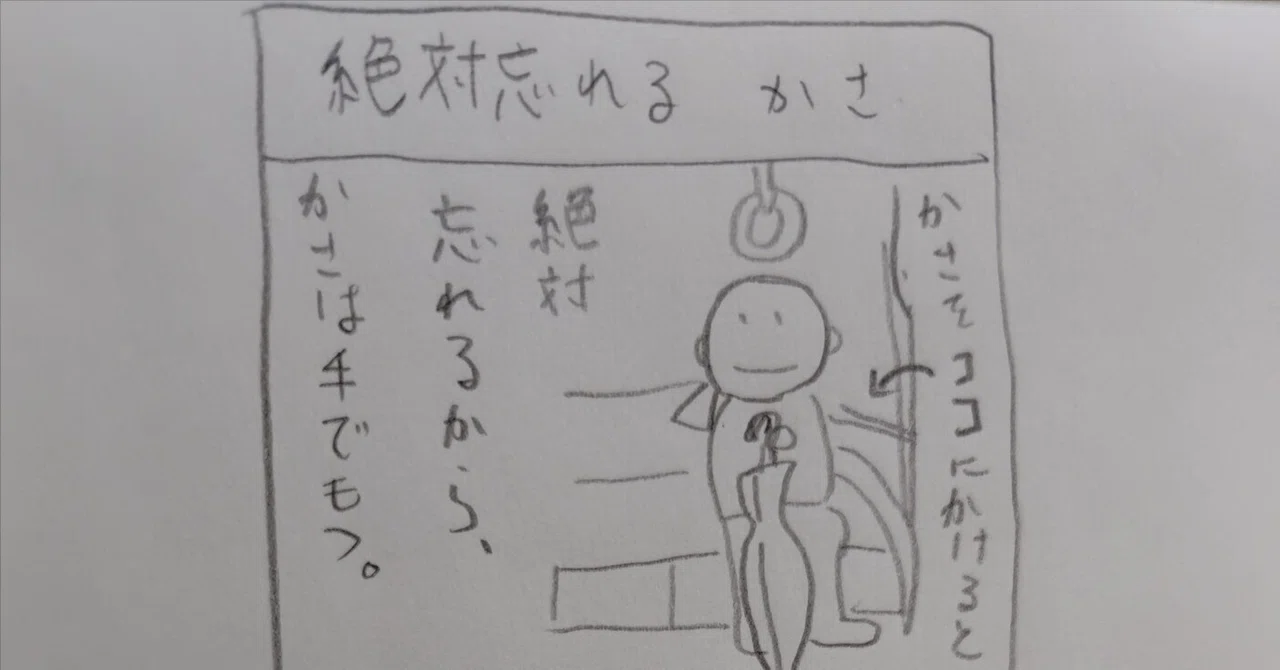 絶対忘れる かさ
かさをココにかけると
絶対
忘れるから、
かさは手でもつ。